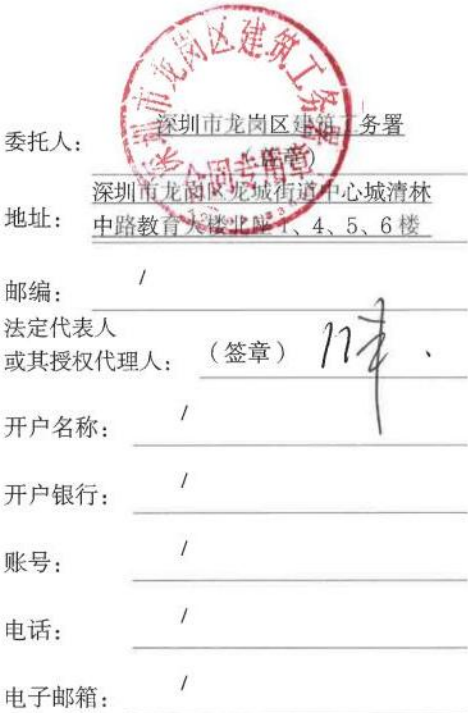 深圳市龙岗区建筑工务署
委托人： 深圳市龙岗区建筑工务署
合同专用章
深圳市龙岗区龙城街道中心城清林
地址： 中路教育大楼北座 1、4、5、6 楼
邮编： /
法定代表人
或其授权代理人： （签章）
开户名称： /
开户银行： /
账号： /
电话： /
电子邮箱： /